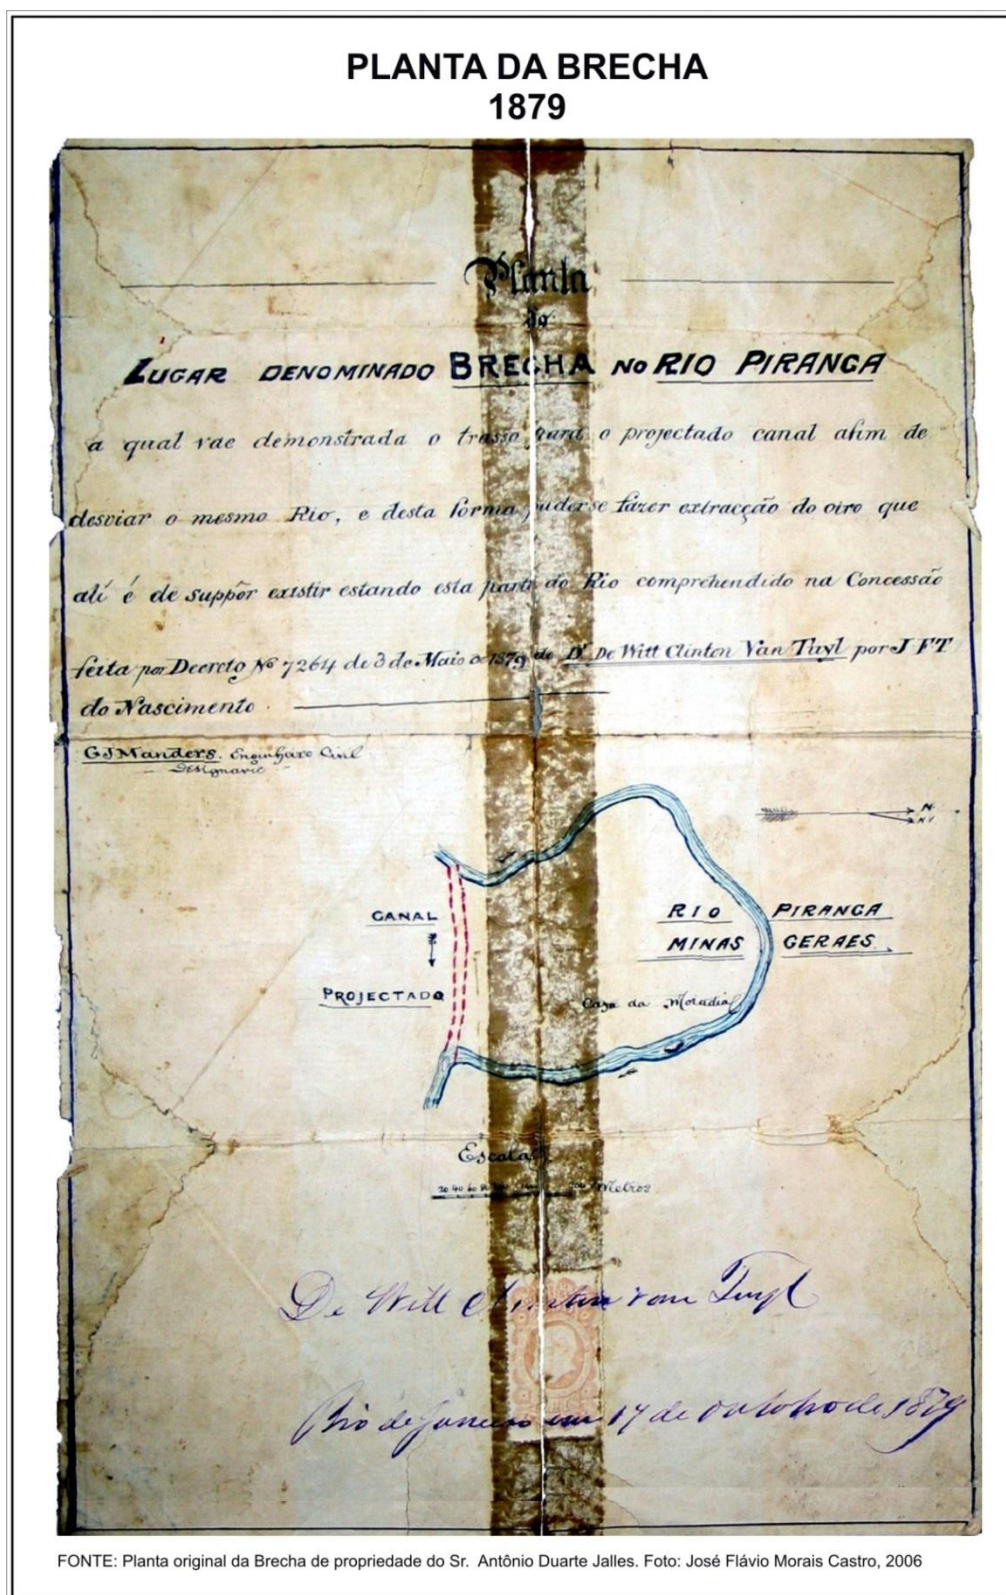 PLANTA DA BRECHA
1879
Planta
do
LUGAR DENOMINADO BRECHA NO RIO PIRANGA
a qual vae demonstrada o trasso para o projectado canal afim de
desviar o mesmo Rio, e desta forma puderse fazer extracção do oiro que
ali é de suppôr existir estando esta parte do Rio comprehendido na Concessão
feita por Decreto Nº 7264 de 3 de Maio de 1879 de Dr De Witt Clinton Van Tuyl por J F T
do Nascimento
G J Manders. Engenharo Civil
N.
CANAL
RIO PIRANGA
MINAS GERAES.
PROJECTADO
Caza da
Escala
20 40 60 Metros
De Witt Clinton van Tuyl
Rio de Janeiro em 17 de outobro de 1879
FONTE: Planta original da Brecha de propriedade do Sr. Antônio Duarte Jalles. Foto: José Flávio Morais Castro, 2006